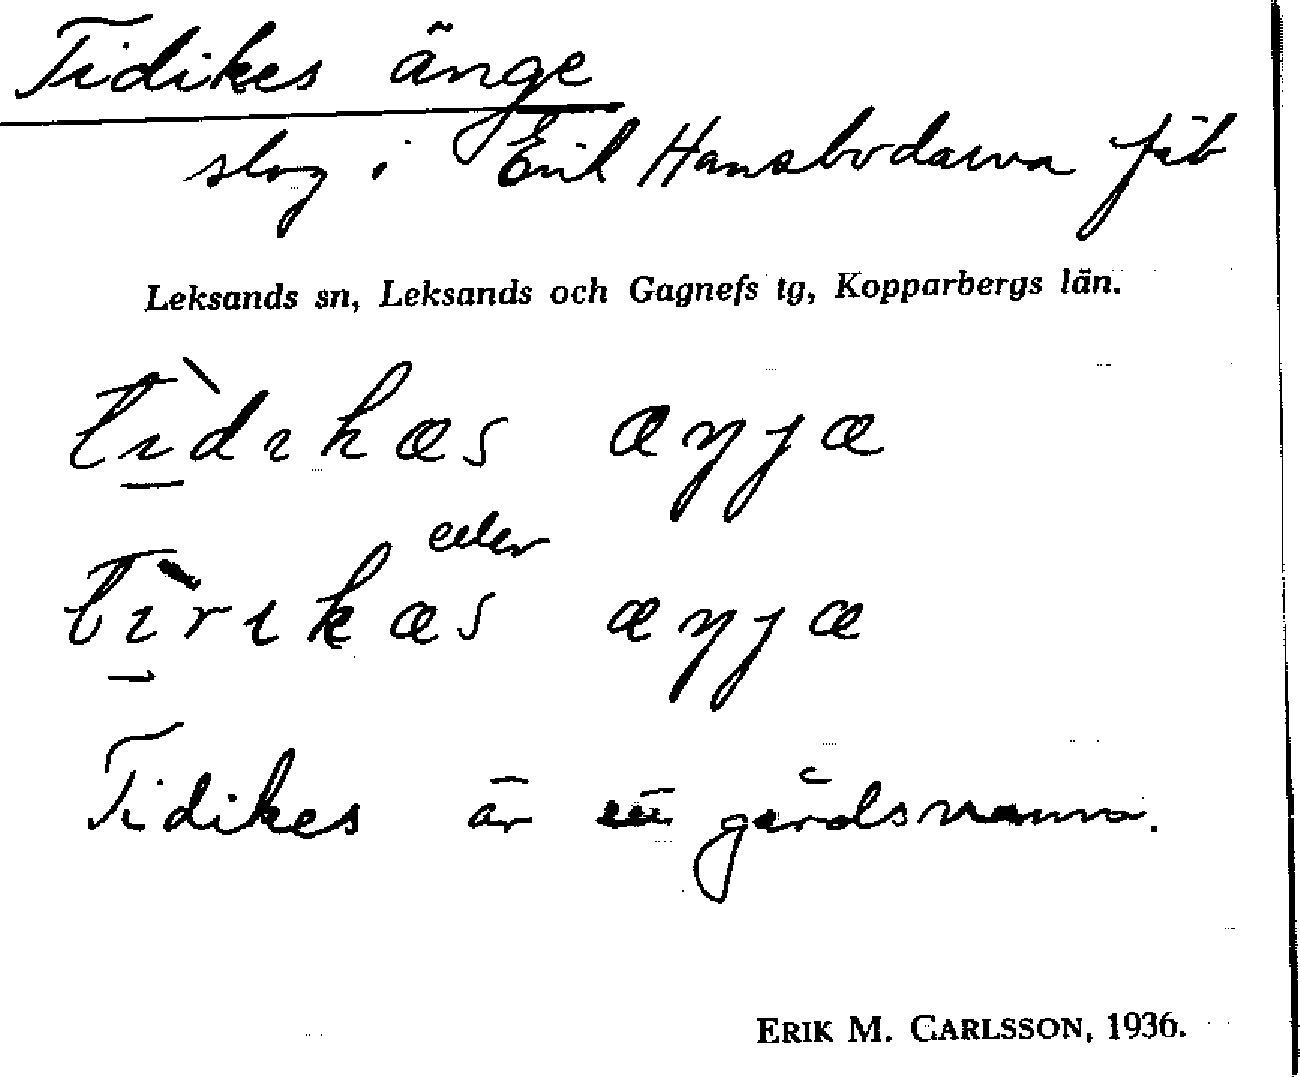 Tidikes änge
slog i Erik Hansbodarna fäb
Leksands sn, Leksands och Gagnefs tg, Kopparbergs län.
tìdıkæs æŋjæ
eller
tìrıkæs æŋjæ
Tidikes är ett gårdsnamn.
ERIK M. CARLSSON, 1936.